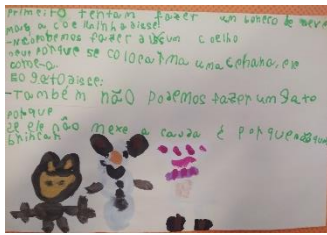 Primeiro tentam fazer um boneco de neve
mas a coelhinha disse:
-Não podemos fazer algum coelho
neve porque se coloca uma cenoura, ele
come-a.
E o gato disse:
-Também não podemos fazer um gato
porque
se ele não mexe a cauda é porque
brincar